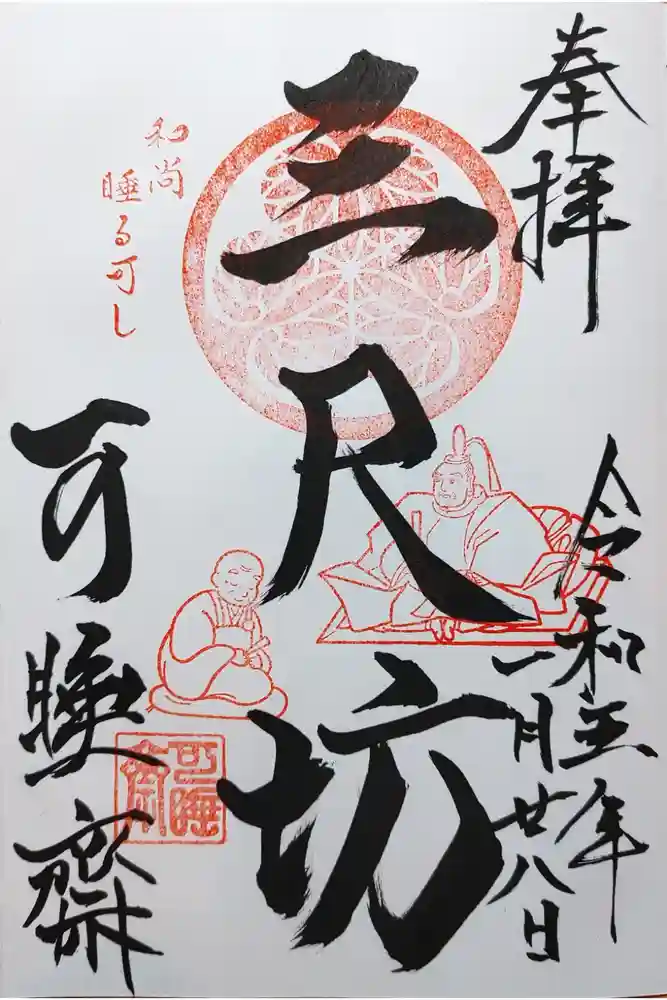 奉拝
令和五年
一月廿八日
三尺坊
和尚
睡る可し
可睡齋
可睡